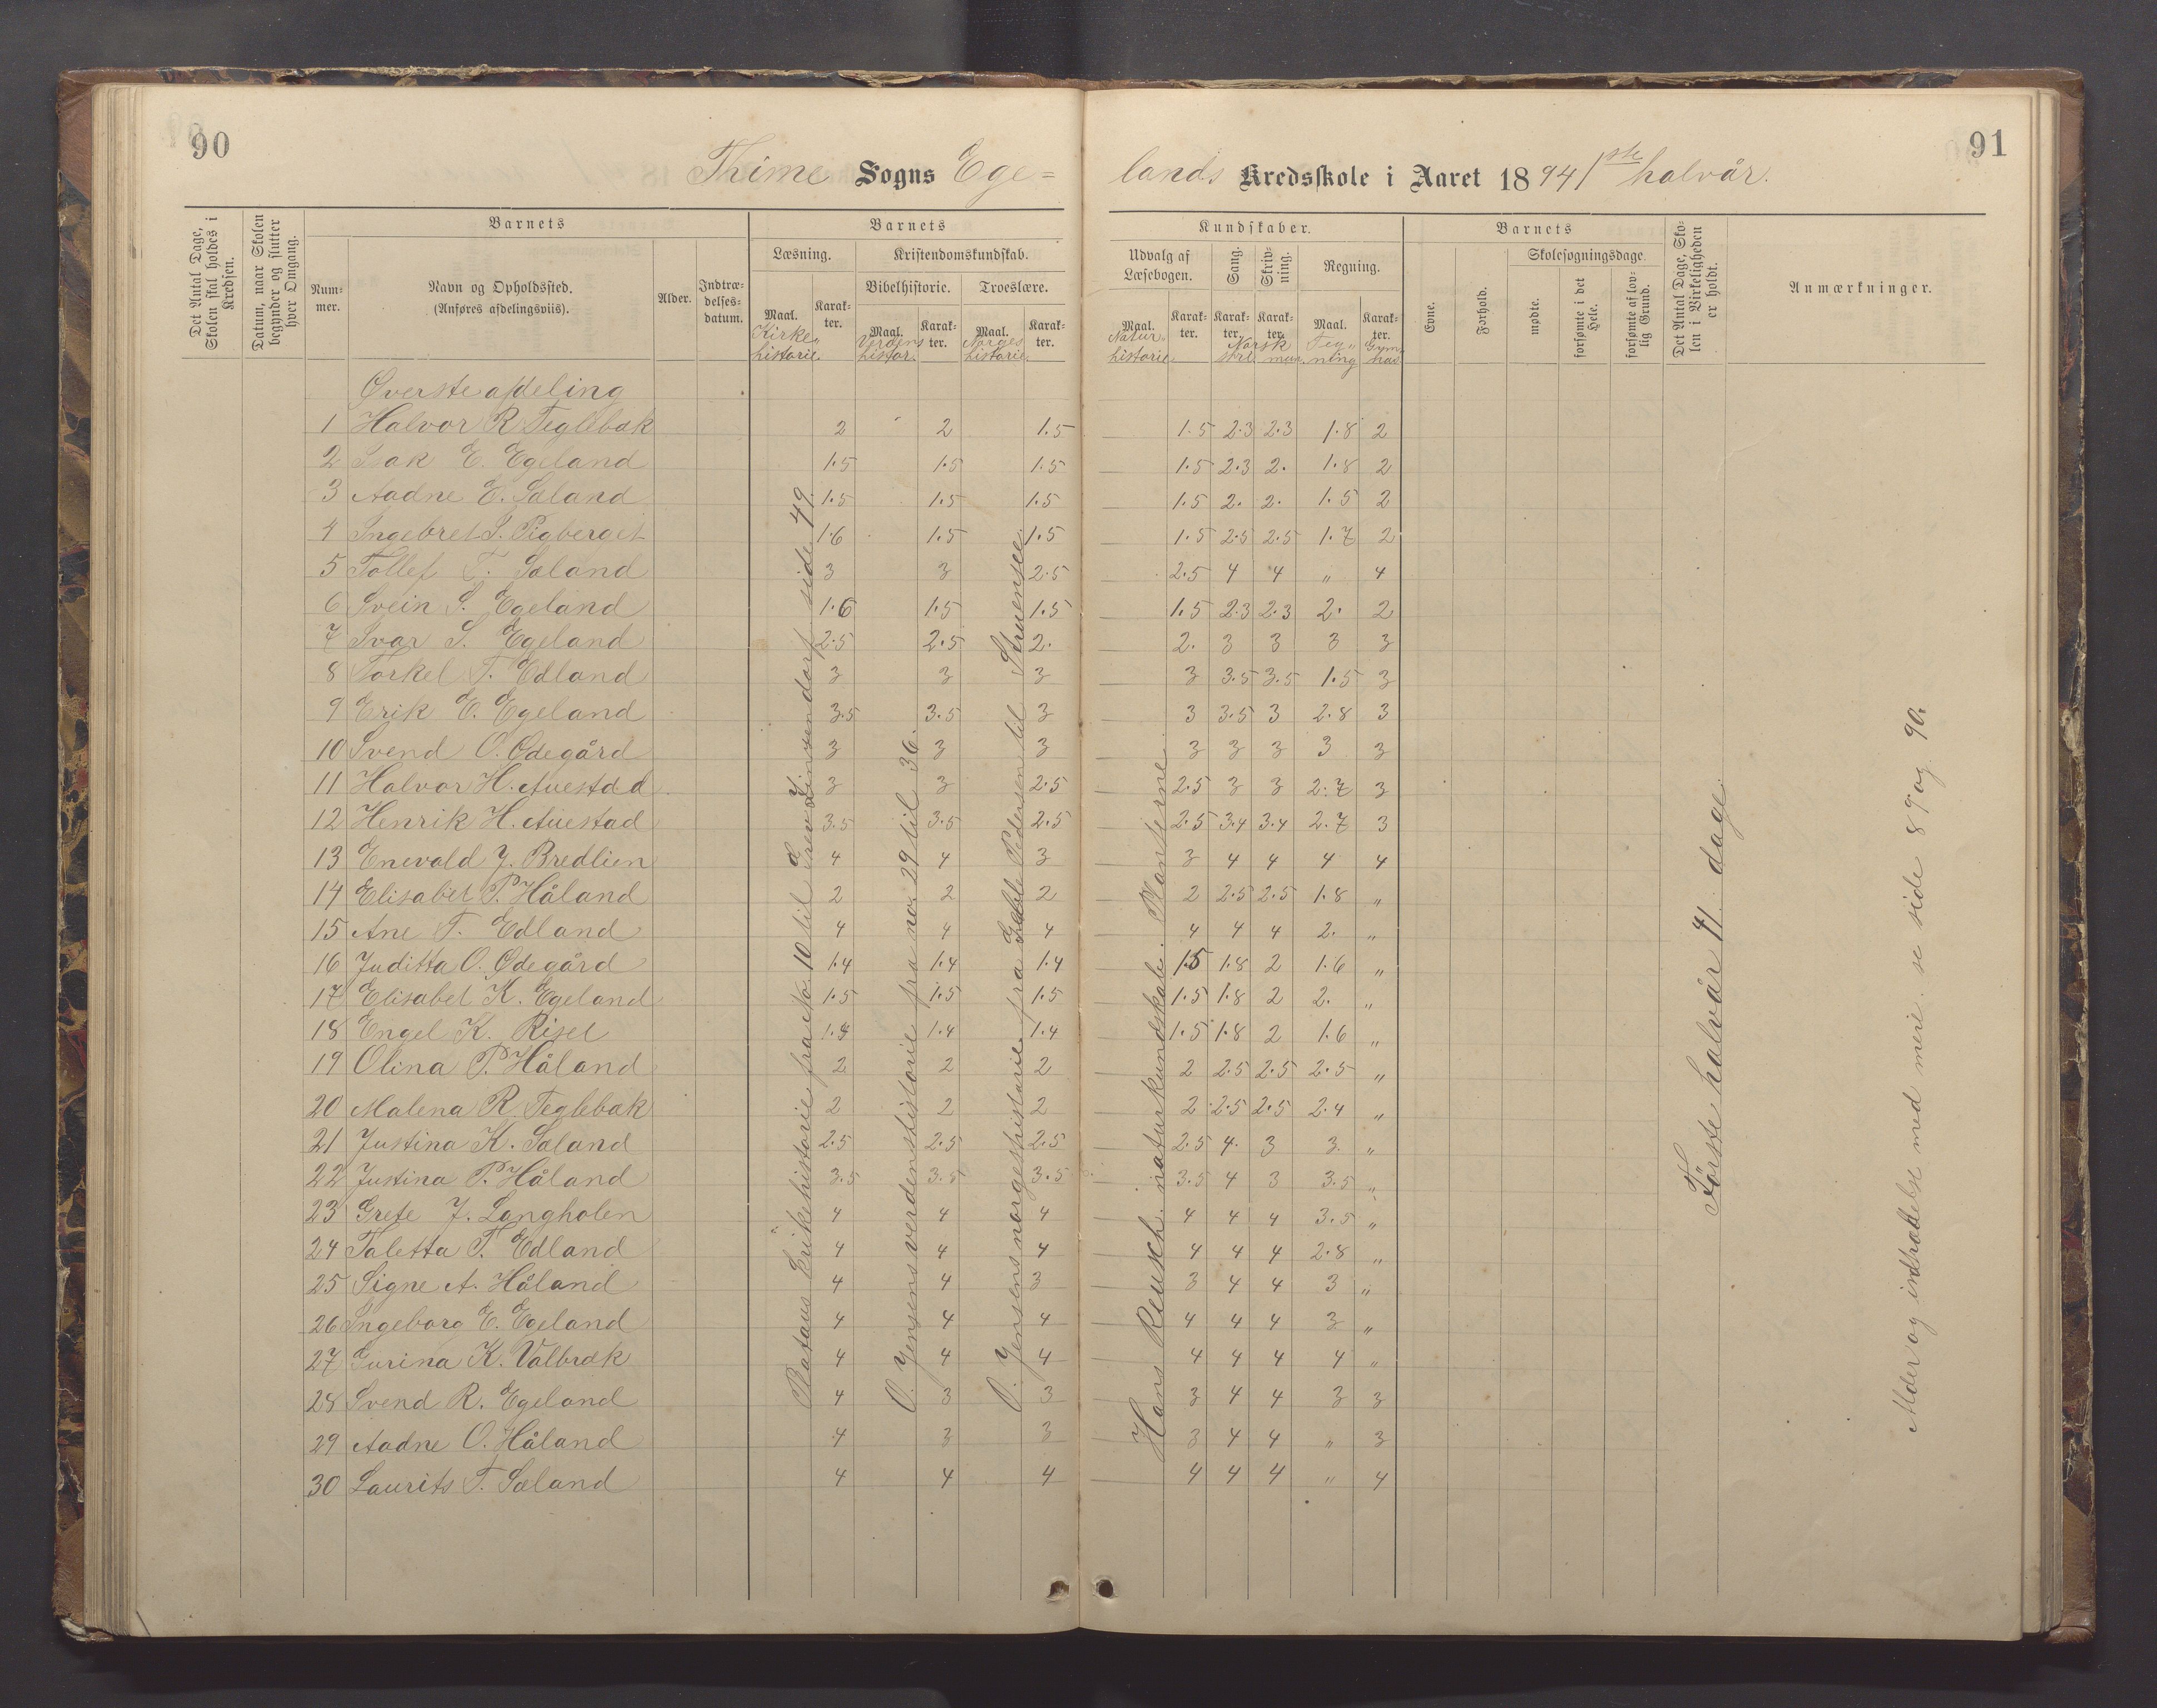 90
Thime Sogns Ege=
Det Antal Dage, Skolen skal holdes i Kredsen.
Datum, naar Skolen begynder og slutter hver Omgang.
Barnets
Nummer.
Navn og Opholdssted.
(Anføres afdelingsviis).
Alder.
Indtrædelsesdatum.
Barnets
Læsning.
Kristendomskundskab.
Bibelhistorie.
Troeslære.
Maal. Karakter. Maal. Karakter. Maal. Karakter.
Kirkehistorie. Verdens histor. Norges historie.
91
lands Kredsskole i Aaret 1894 1ste halvår.
Kundskaber.
Udvalg af Læsebogen.
Sang.
Skrivning.
Regning.
Maal. Karakter. Karakter. Karakter. Maal. Karakter.
Natur historie. Norsk stil mun. Tegning Gymnas
Barnets
Evne.
Forhold.
Skolesøgningsdage.
mødte.
forsømte i det Hele.
forsømte af lovlig Grund.
Det Antal Dage, Skolen i Virkeligheden er holdt.
Anmærkninger.
Øverste afdeling
1 Halvor R Teglebak 2 2 1.5 1.5 2.3 2.3 1.8 2
2 Isak E. Egeland 1.5 1.5 1.5 1.5 2.3 2. 1.8 2
3 Aadne E. Sæland 1.5 1.5 1.5 1.5 2. 2. 1.5 2
4 Ingebret S. Pigberget 1.6 1.5 1.5 1.5 2.5 2.5 1.7 2
5 Tollef T. Sæland 3 3 2.5 2.5 4 4 " 4
6 Svein S. Egeland 1.6 1.5 1.5 1.5 2.3 2.3 2. 2
7 Ivar S. Egeland 2.5 2.5 2. 2. 3 3 3 3
8 Torkel T. Edland 3 3 3 3 3.5 3.5 1.5 3
9 Erik E. Egeland 3.5 3.5 3 3 3.5 3 2.8 3
10 Svend O. Ødegård 3 3 3 3 3 3 3 3
11 Halvor H. Auestad 3 3 2.5 2.5 3 3 2.7 3
12 Henrik H. Auestad 3.5 3.5 2.5 2.5 3.4 3.4 2.7 3
13 Enevald J. Bredlien 4 4 3 3 4 4 4 4
14 Elisabet P. Håland 2 2 2 2 2.5 2.5 1.8 "
15 Ane T. Edland 4 4 4 4 4 4 2. "
16 Juditta O. Ødegård 1.4 1.4 1.4 1.5 1.8 2 1.6 "
17 Elisabet K. Egeland 1.5 1.5 1.5 1.5 1.8 2 2. "
18 Engel K. Riset 1.4 1.4 1.4 1.5 1.8 2 1.6 "
19 Olina P. Håland 2 2 2 2 2.5 2.5 2.5 "
20 Malena R Teglebak 2 2 2 2 2.5 2.5 2.4 "
21 Justina K. Sæland 2.5 2.5 2.5 2.5 4. 3 3. "
22 Justina P. Håland 3.5 3.5 3.5 3.5 4 3 3.5 "
23 Grete J. Langholen 4 4 4 4 4 4 3.5 "
24 Taletta T. Edland 4 4 4 4 4 4 2.8 "
25 Signe A. Håland 4 4 3 3 4 4 3 "
26 Ingeborg E. Egeland 4 4 4 4 4 4 3 "
27 Gurina K. Valbrak 4 4 4 4 4 4 4 "
28 Svend R. Egeland 4 3 3 3 4 4 3 3
29 Aadne O. Håland 4 3 3 3 4 4 " 3
30 Laurits T. Sæland 4 4 4 4 4 4 " 4
kirkehistorie fra No. 10 til Grev Zinzendorf side 49.
O. Jensens verdenshistorie fra no. 29 til 36.
O. Jensens norgeshistorie fra Gable Pedersen til Struensee.
Hans Reusch. naturkundskab. Planterne.
Første halvår 41 dage.
Alder og indtrædelse med mere. se side 89 og 90.